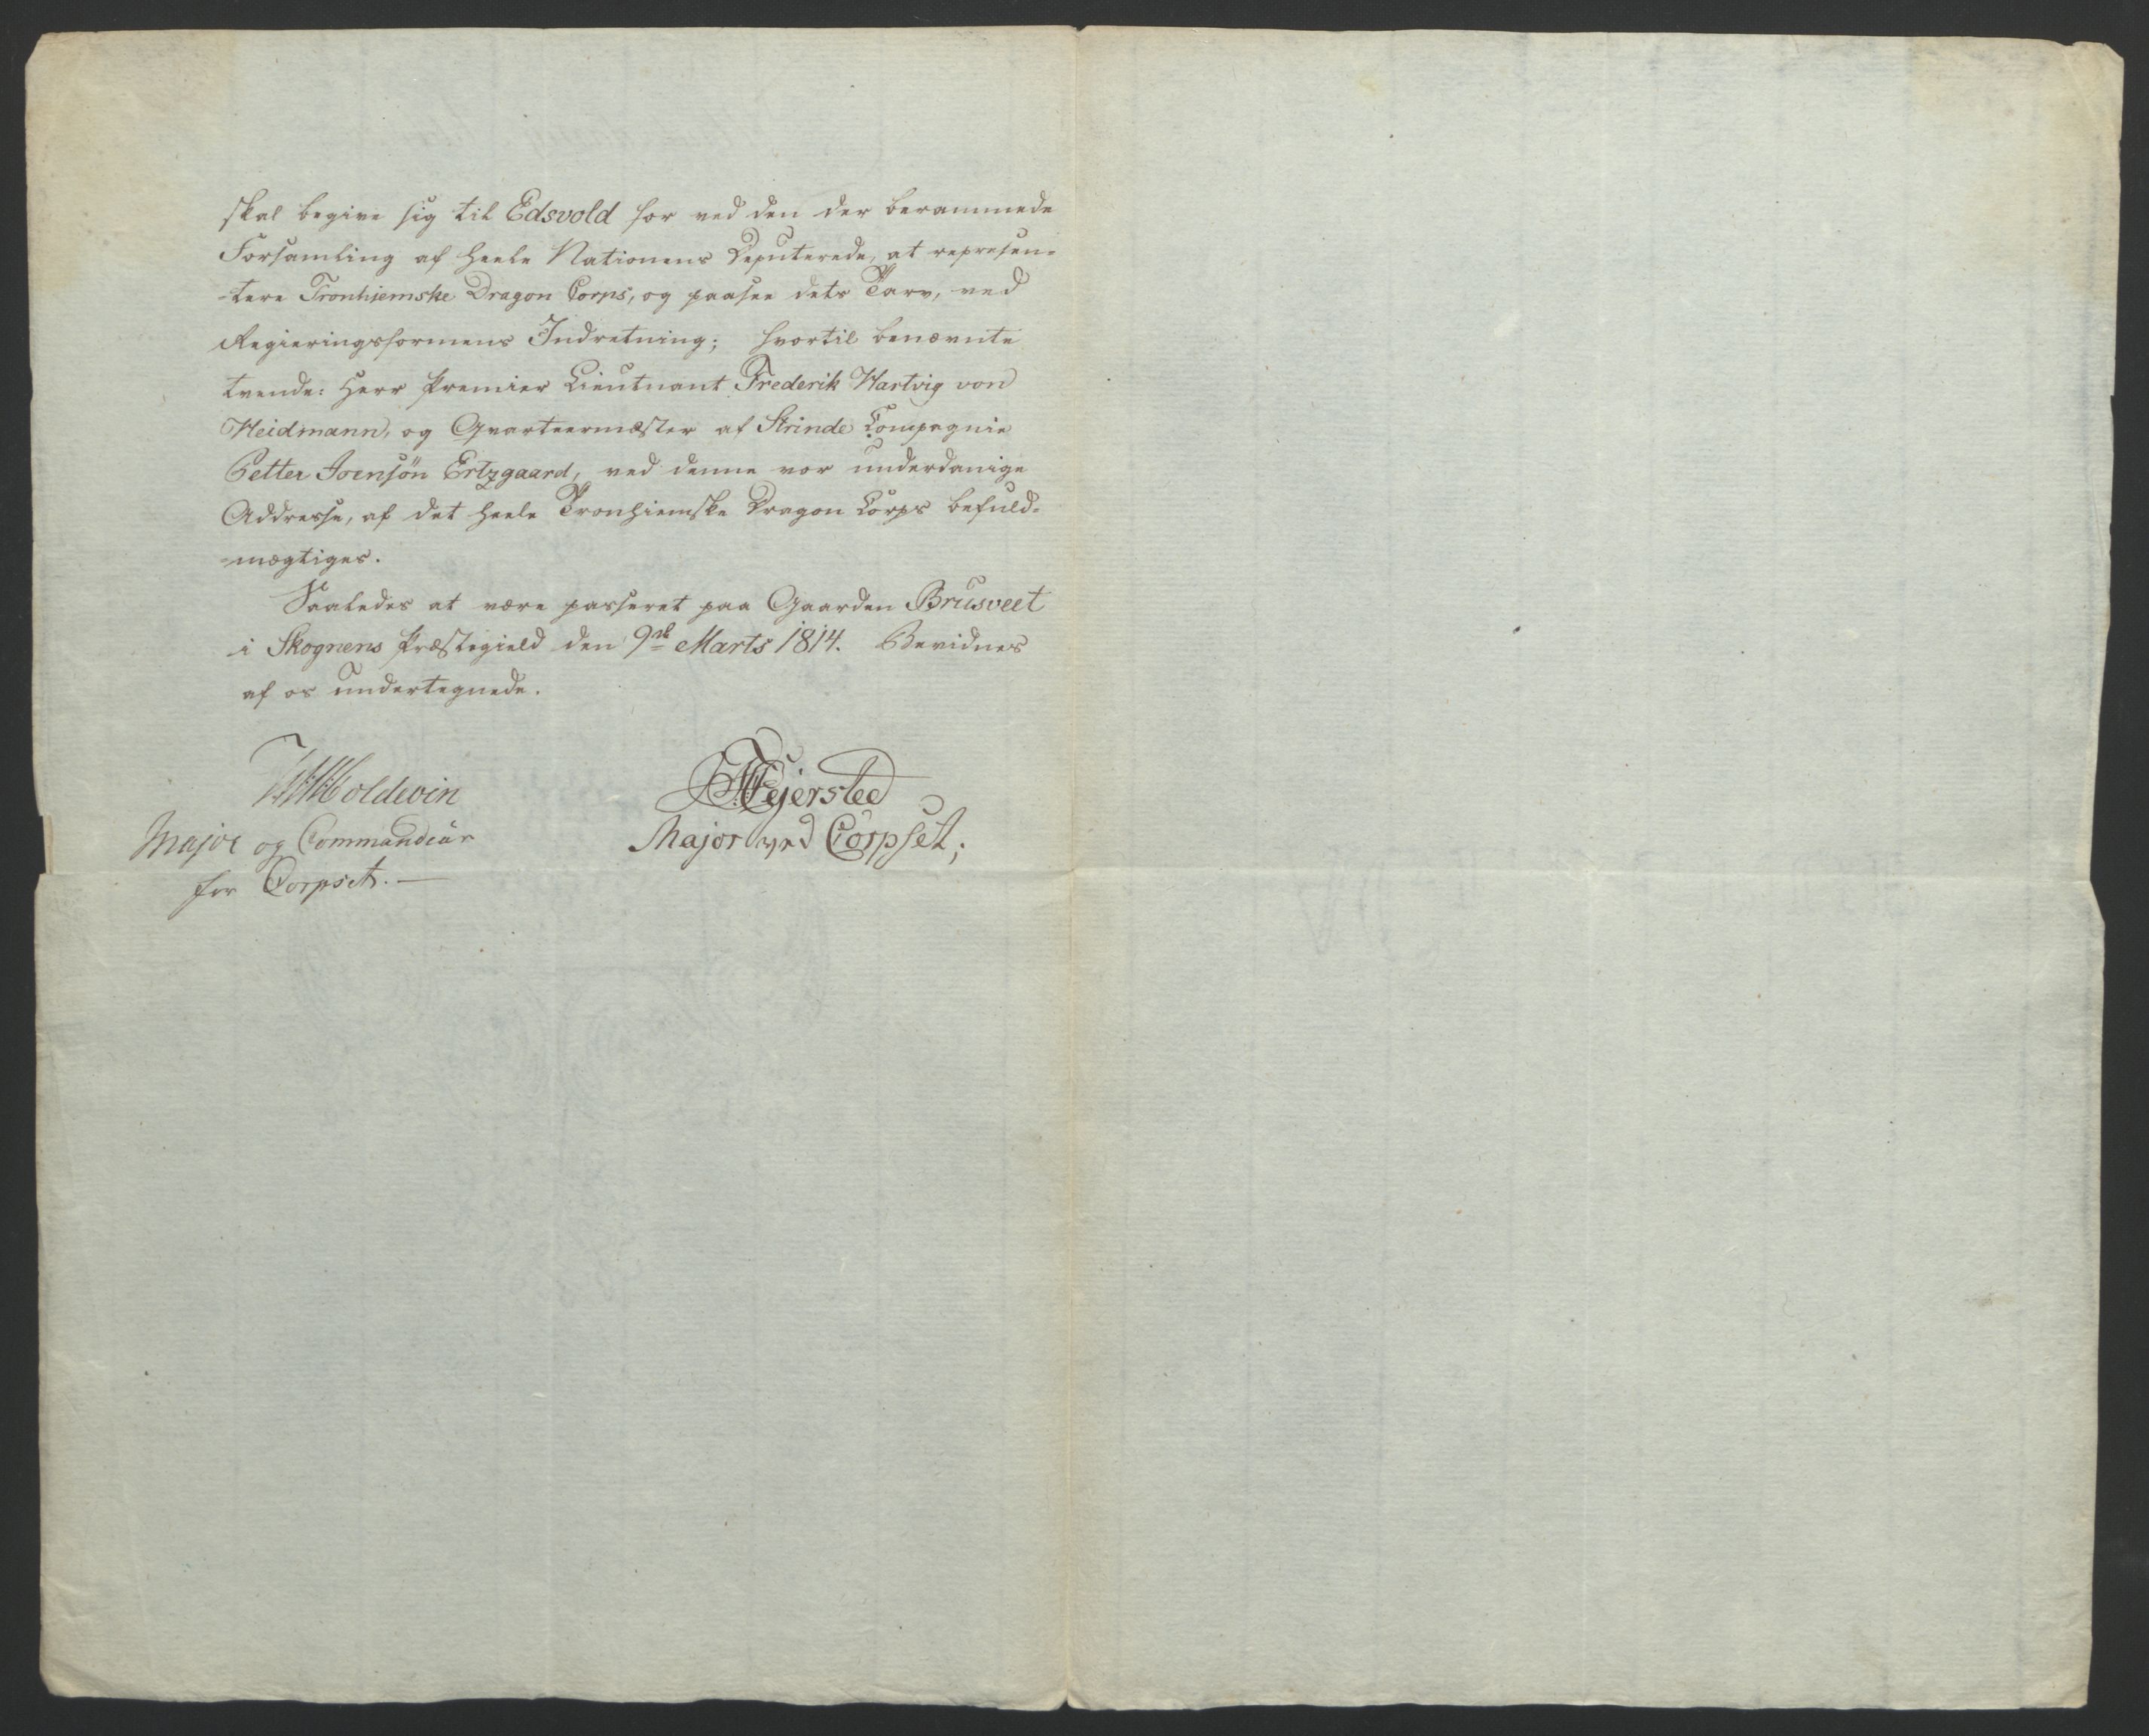 skal begive sig til Edsvold for ved den der berammede
Forsamling af heele Nationens Deputerede, at represen-
-tere Tronhiemske Dragon Corps, og paasee dets Tarv, ved
Regieringsformens Indretning; hvortil benævnte
tvende: Herr Premier Lieutnant Frederik Hartvig von
Heidmann, og Qvarteermester af Strinde Compagnie
Petter Ivensøn Ertzgaard, ved denne vor underdanige
Addresse, af det heele Tronhiemske Dragon Corps befuld-
-mægtiges.
Saaledes at være passeret paa Gaarden Brusveet
i Skognens Præstegield den 9de Marts 1814. Bevidnes
af os undertegnede.
Coldevin
Major og Commandeur
for Corpset.—
Fejersted
Major ved Corpset;